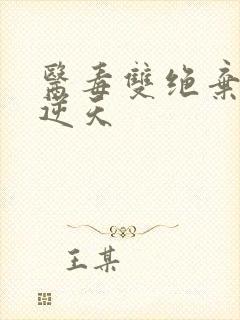 醫毒雙绝棄
逆天
王某